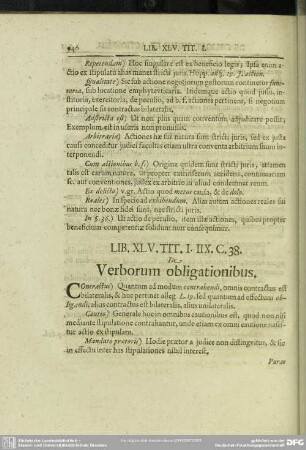 246 LIB. XLV. TIT. I.
Repetendam) Hoc singulare est ex beneficio legis; Ipsa enim a-
ctio ex stipulatu alias manet stricti juris.
Qualiter) Sic sub actione negotiorum gestorum continetur fune-
raria, sub locatione emphyteuticaria. Itidemque actio quod jussu, in-
stitoria, exercitoria, de peculio, ad b. f. actiones pertinent, si negotium
principale sit contractus bilateralis.
Adstricta est) Ut non plus quam conventum, adjudicare possit;
Exemplum est in usuris non promissis.
Arbitraria) Actiones hæ sua natura sunt stricti juris, sed ex justa
causa conceditur judici facultas etiam ultra conventa arbitrium suum in-
terponendi.
Cum actionibus b. f.) Origine quidem sunt stricti juris, attamen
talis est earum natura, ut propter extrinsecum accidens, contumaciam
sc. aut conventiones, judex ex arbitrio in aliud condemnet reum.
Ex delicto) v. gr. Actio quod metus causa, & de dolo.
Reales) In specie ad exhibendum. Alias autem actiones reales sui
natura nec bonæ fidei sunt, nec stricti juris.
In §. 36.) Ut actio de peculio, item illæ actiones, quibus propter
beneficium competentiæ solidum non consequimur.
LIB. XLV. TIT. I. IIX. C. 38.
De
Verborum obligationibus.
Contractus) Quantum ad modum contrahendi, omnis contractus est
bilateralis, & huc pertinet alleg. L. 19. sed quantum ad effectum ob-
ligandi, alius contractus est bilateralis, alius unilateralis.
Cautio) Generale hoc in omnibus cautionibus est, quod non nisi
mediante stipulatione contrahantur, unde etiam ex omni cautione nasci-
tur actio ex stipulatu.
Mandato prætoris) Hodie prætor a judice non distinguitur, & sic
in effectu inter has stipulationes nihil interest.
Paratæ